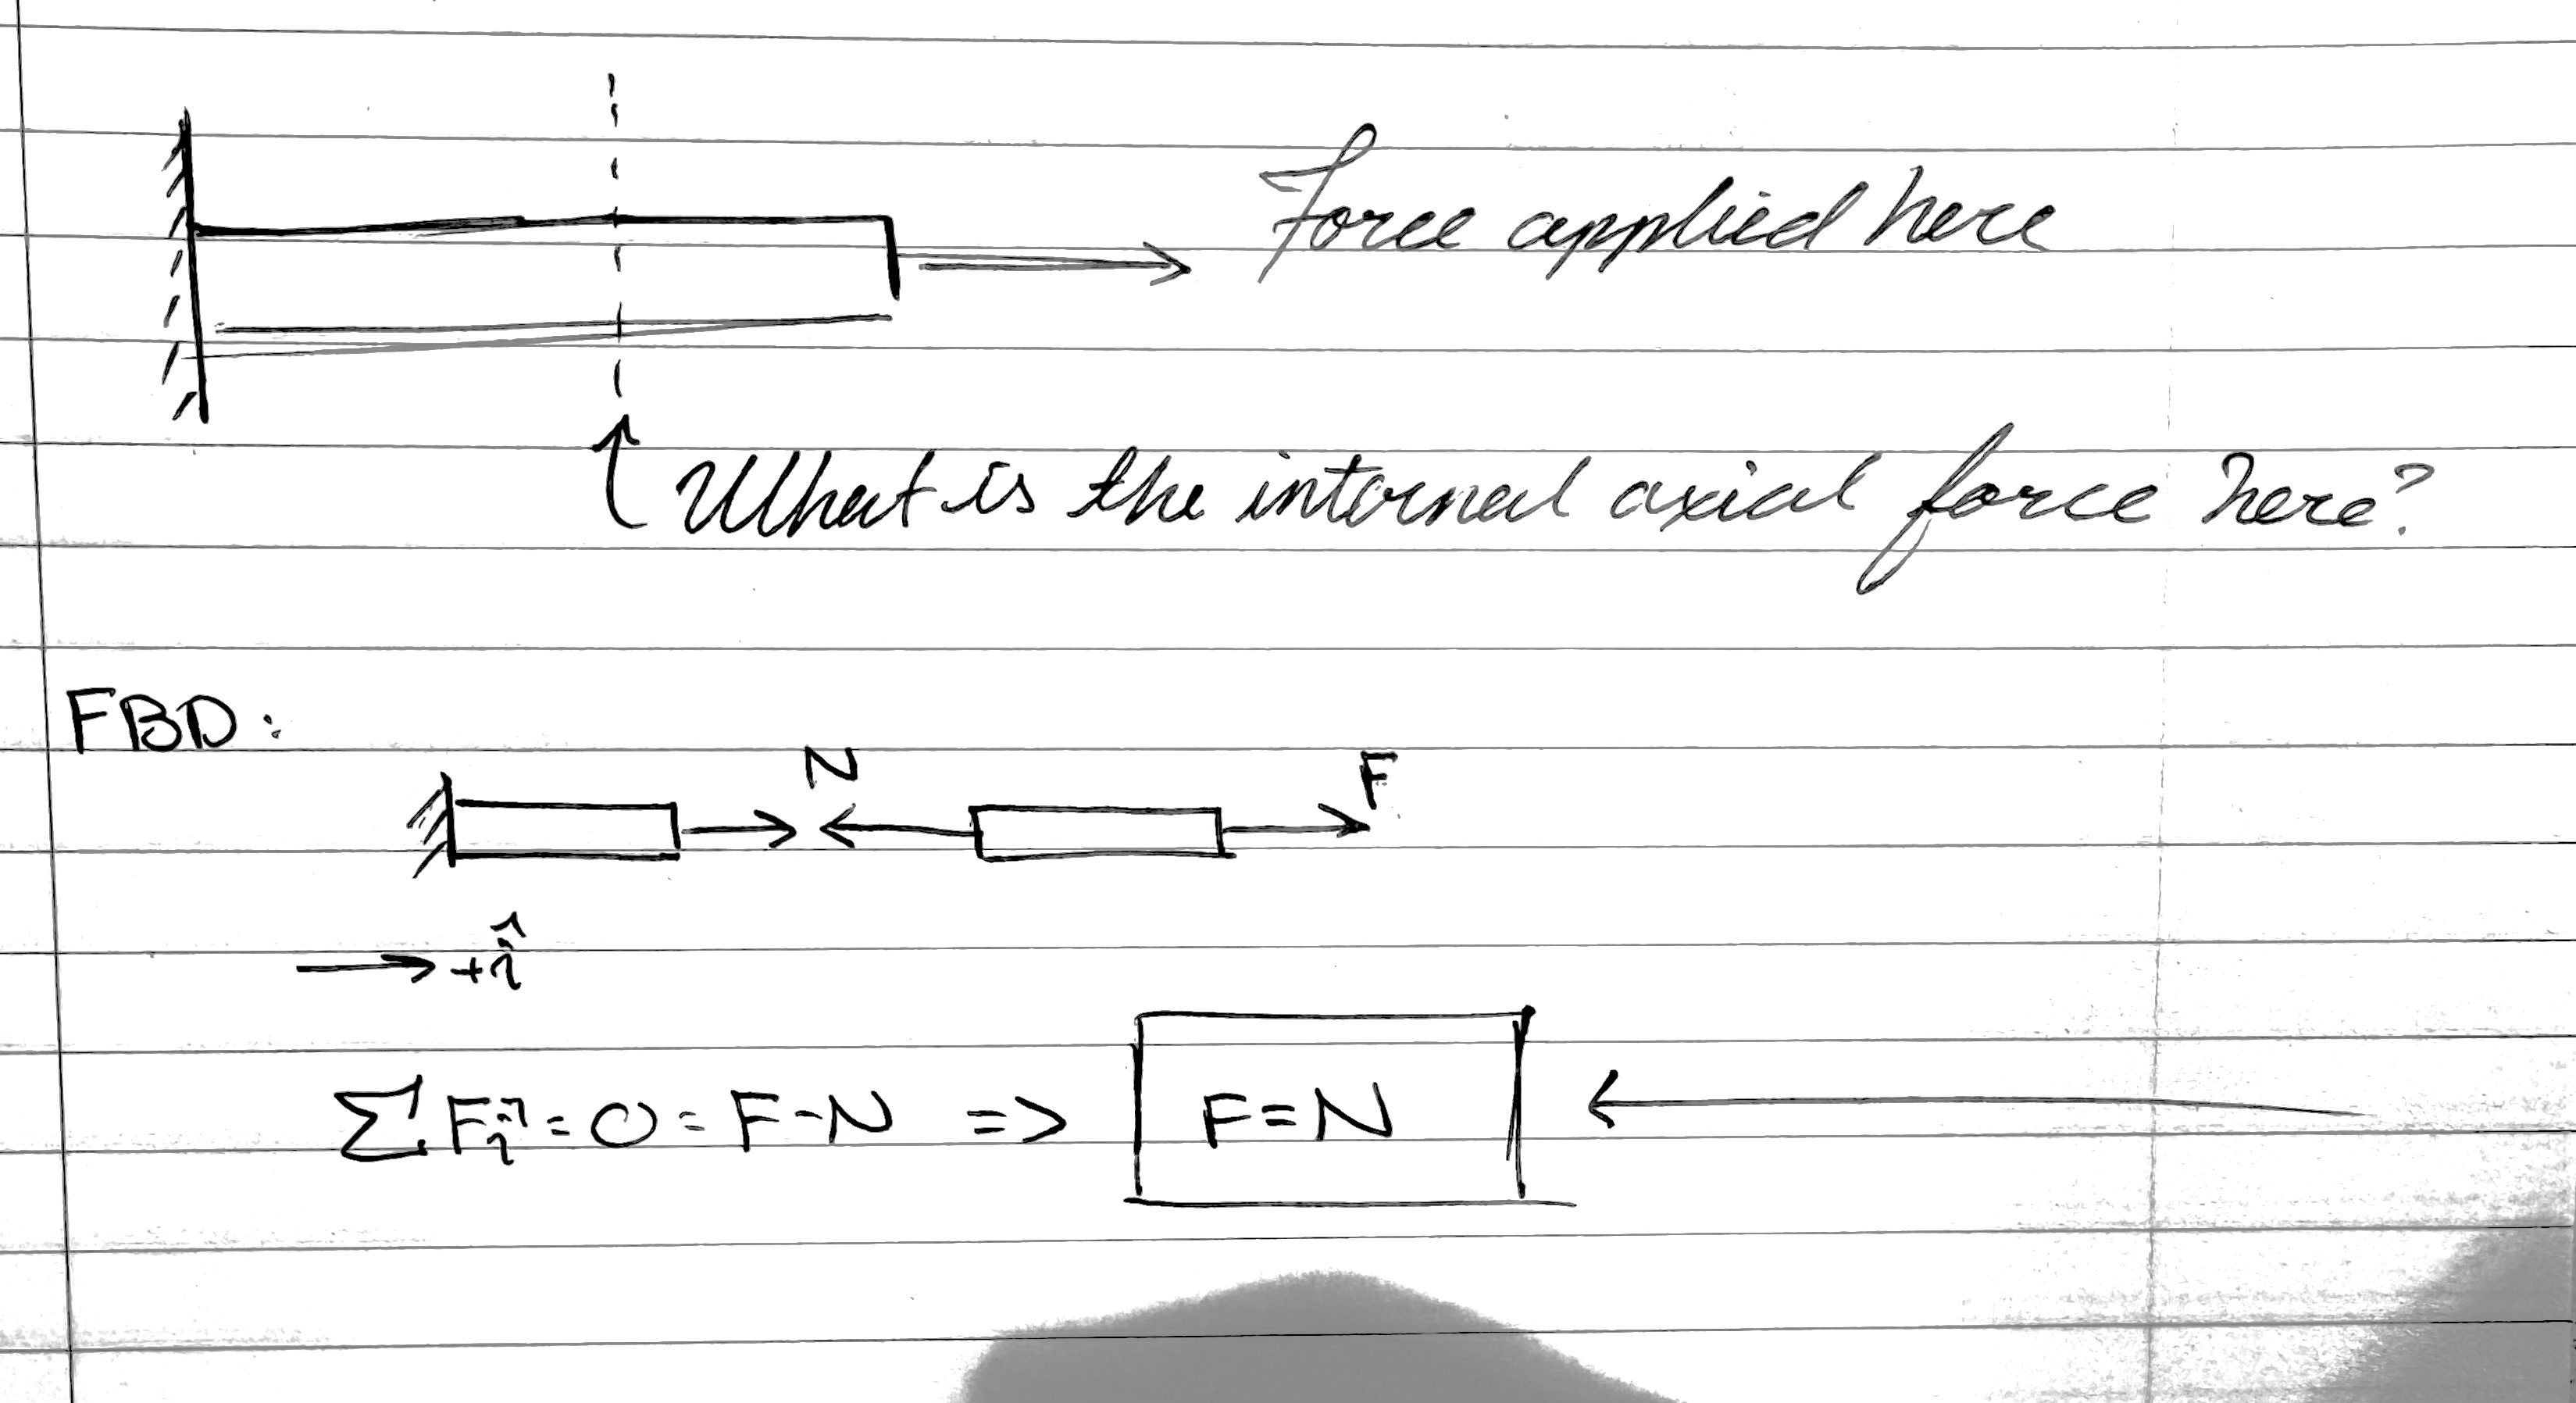 Force applied here
What is the internal axial force here?
FBD:
N F
→ +î
∑ Fî = 0 = F - N => F = N